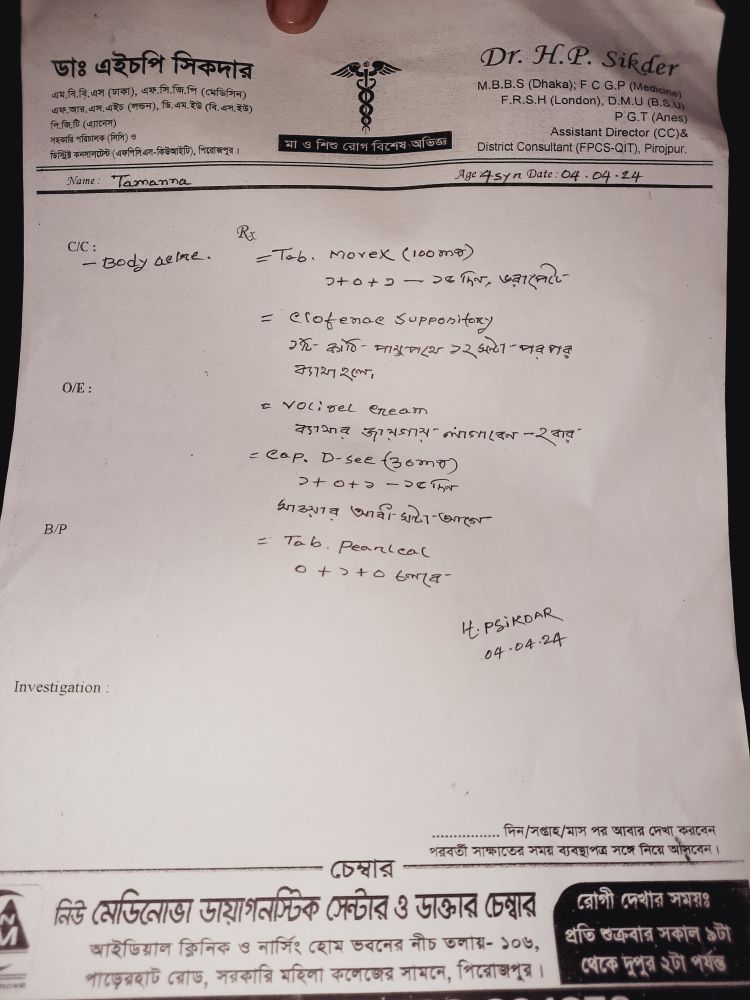 ডাঃ এইচপি সিকদার
এম.বি.বি.এস (ঢাকা), এফ.সি.জি.পি (মেডিসিন)
এফ.আর.এস.এইচ (লন্ডন), ডি.এম.ইউ (বি.এস.ইউ)
পি.জি.টি (এ্যানেস)
সহকারি পরিচালক (সিসি) ও
ডিস্ট্রিক্ট কনসালটেন্ট (এফপিসিএস-কিউআইটি), পিরোজপুর।
মা ও শিশু রোগ বিশেষ অভিজ্ঞ
Dr. H.P. Sikder
M.B.B.S (Dhaka); F C G.P (Medicine)
F.R.S.H (London), D.M.U (B.S.U)
P G.T (Anes)
Assistant Director (CC)&
District Consultant (FPCS-QIT), Pirojpur.
Name : Tamanna Age 45yn Date : 04.04.24
C/C :
- Body ache.
Rx
= Tab. Morex (100mg)
১+০+১ — ১৫ দিন, ভরাপেটে
= Clofenac Suppository
১টি কাঠি পায়ুপথে ১২ ঘন্টা পরপর
ব্যাথা হলে,
O/E :
= Voligel cream
ব্যাথার জায়গায় লাগাবেন - ২ বার
= Cap. D-sec (30mg)
১+০+১ — ১৫ দিন
খাওয়ার আধা ঘন্টা আগে
B/P
= Tab. Pearlcal
০+১+০ চলবে
H.PSiKDAR
04.04.24
Investigation :
................ দিন/সপ্তাহ/মাস পর আবার দেখা করবেন
পরবর্তী সাক্ষাতের সময় ব্যবস্থাপত্র সঙ্গে নিয়ে আসবেন।
চেম্বার
নিউ মেডিনোভা ডায়াগনস্টিক সেন্টার ও ডাক্তার চেম্বার
আইডিয়াল ক্লিনিক ও নার্সিং হোম ভবনের নীচ তলায়- ১০৬,
পাড়েরহাট রোড, সরকারি মহিলা কলেজের সামনে, পিরোজপুর।
রোগী দেখার সময়ঃ
প্রতি শুক্রবার সকাল ৯টা
থেকে দুপুর ২টা পর্যন্ত